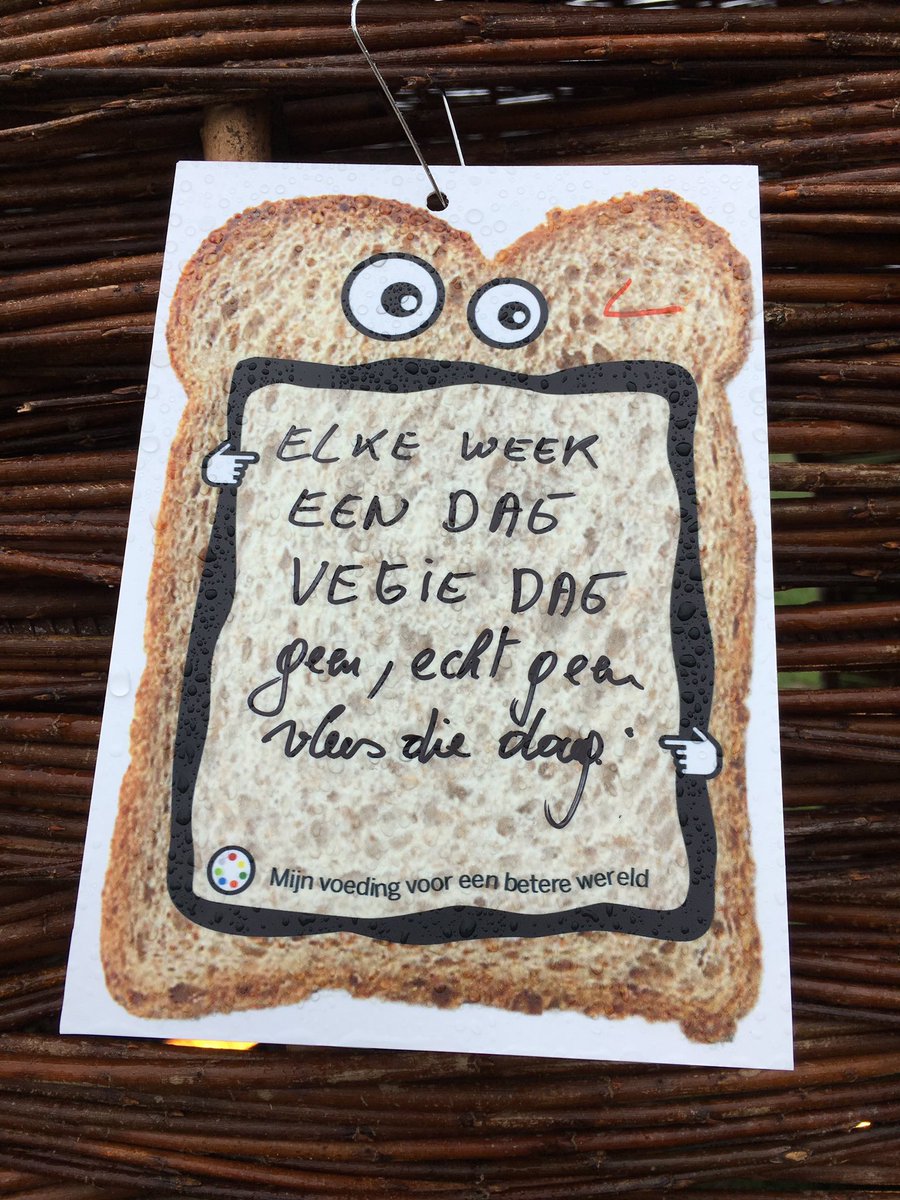 ELKE WEEK
EEN DAG
VEGIE DAG
geen, echt geen
vlees die dag!
Mijn voeding voor een betere wereld